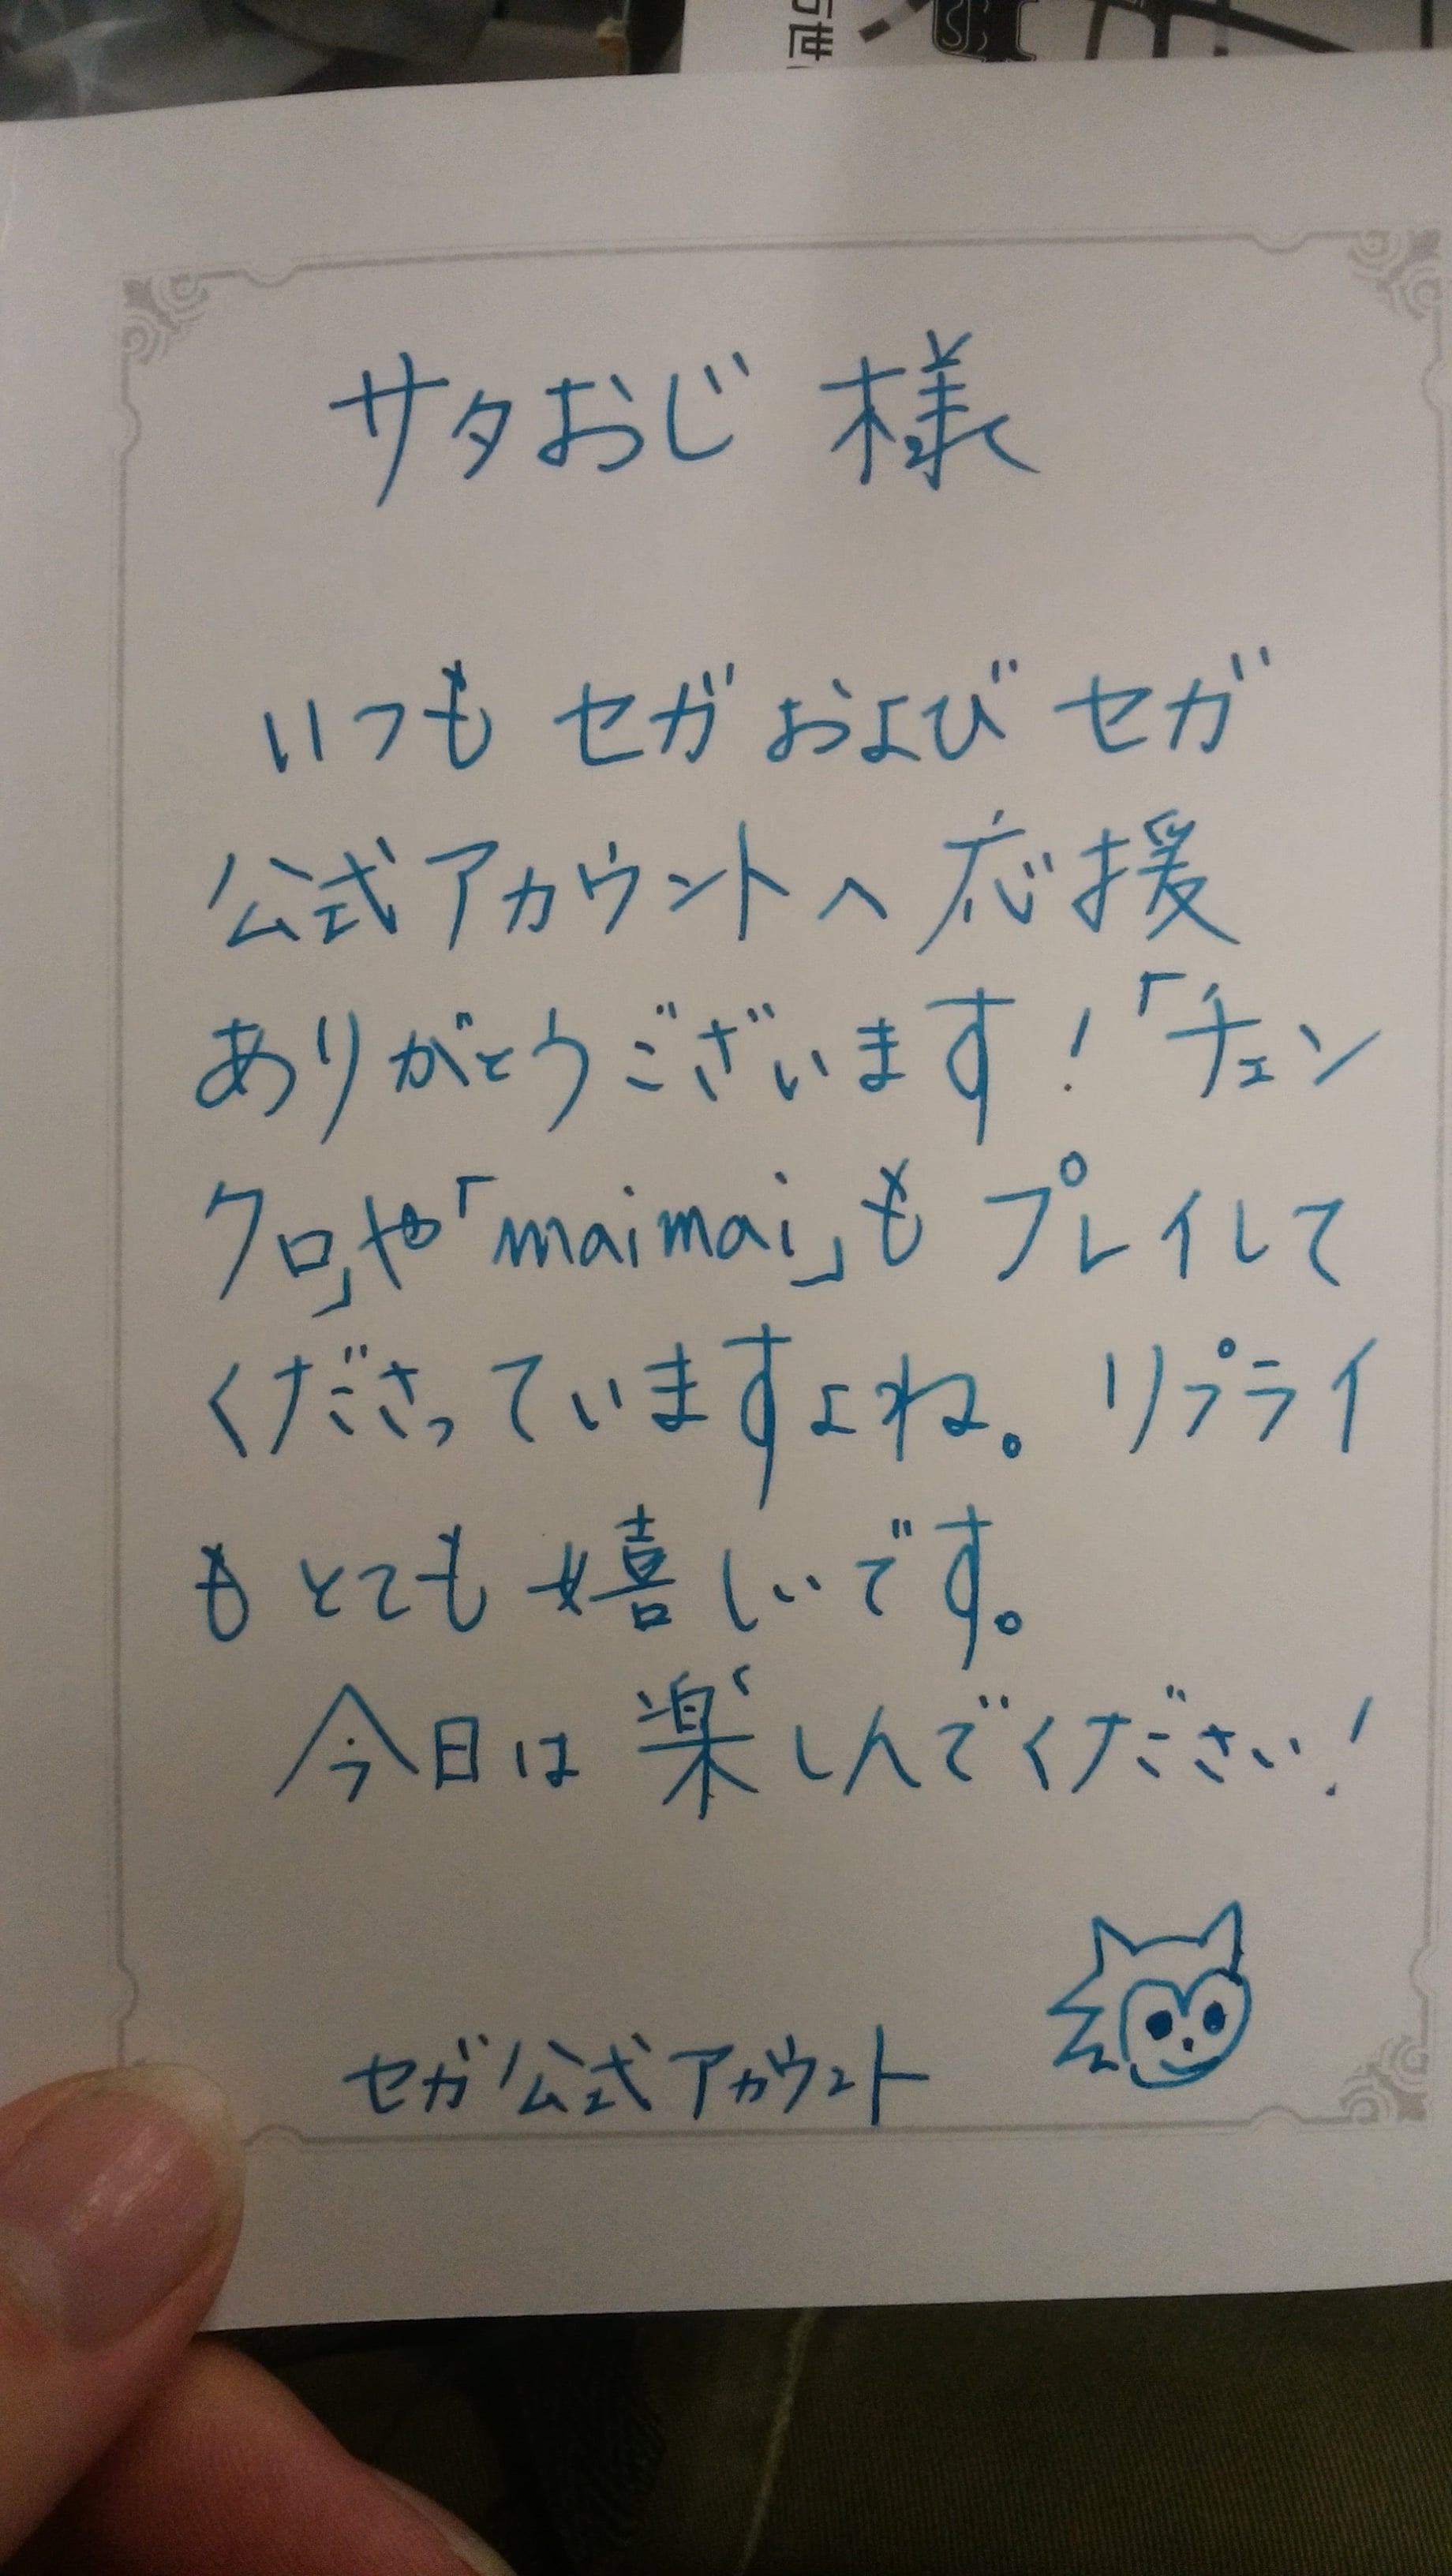 サタおじ 様
いつも セガ および セガ
公式アカウントへ 応援
ありがとうございます！「チェン
クロ」や「maimai」も プレイして
くださっていますよね。リプライ
も とても 嬉しいです。
今日は 楽しんでください！
セガ公式アカウント